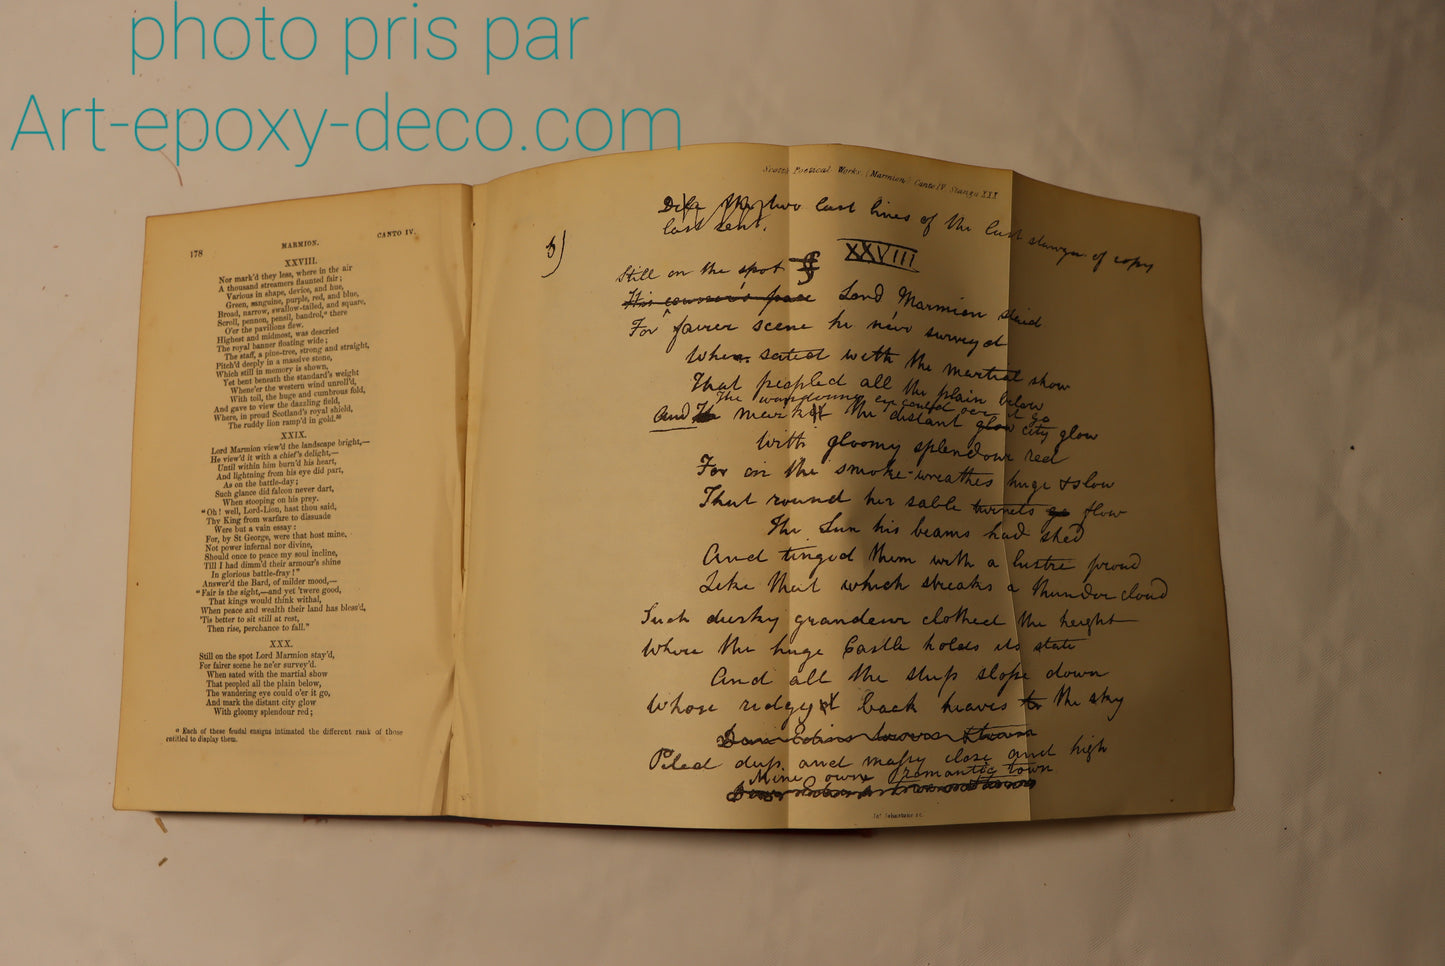 photo pris par
Art-epoxy-deco.com
178
MARMION.
CANTO IV.
XXVIII.
Nor mark'd they less, where in the air
A thousand streamers flaunted fair;
Various in shape, device, and hue,
Green, sanguine, purple, red, and blue,
Broad, narrow, swallow-tailed, and square,
Scroll, pennon, pensil, bandrol,⁹ there
O'er the pavilions flew.
Highest and midmost, was descried
The royal banner floating wide;
The staff, a pine-tree, strong and straight,
Pitch'd deeply in a massive stone,
Which still in memory is shown,
Yet bent beneath the standard's weight
Whene'er the western wind unroll'd,
With toil, the huge and cumbrous fold,
And gave to view the dazzling field,
Where, in proud Scotland's royal shield,
The ruddy lion ramp'd in gold.¹⁰
XXIX.
Lord Marmion view'd the landscape bright,—
He view'd it with a chief's delight,—
Until within him burn'd his heart,
And lightning from his eye did part,
As on the battle-day;
Such glance did falcon never dart,
When stooping on his prey.
"Oh! well, Lord-Lion, hast thou said,
Thy King from warfare to dissuade
Were but a vain essay:
For, by St George, were that host mine,
Not power infernal nor divine,
Should once to peace my soul incline,
Till I had dimm'd their armour's shine
In glorious battle-fray!"
Answer'd the Bard, of milder mood,—
"Fair is the sight,—and yet 'twere good,
That kings would think withal,
When peace and wealth their land has bless'd,
'Tis better to sit still at rest,
Then rise, perchance to fall."
XXX.
Still on the spot Lord Marmion stay'd,
For fairer scene he ne'er survey'd.
When sated with the martial show
That peopled all the plain below,
The wandering eye could o'er it go,
And mark the distant city glow
With gloomy splendour red;
⁹ Each of these feudal ensigns intimated the different rank of those
entitled to display them.
Scott's Poetical Works, (Marmion) Canto IV Stanza XXX
two last lines of the last stanza of copy
last sent.
5)
XXVIII
Still on the spot
His courser's pace Lord Marmion staid
For fairer scene he neer surveyd
When sated with the martial show
That peopled all the plain below
The wandering eye could oer it go
And mark the distant glow city glow
With gloomy splendour red
For on the smoke-wreathes huge & slow
That round her sable turrets flow
The Sun his beams had shed
And tinged them with a lustre proud
Like that which streaks a thunder cloud
Such dusky grandeur clothed the height
Where the huge Castle holds its state
And all the steep slope down
Whose ridgy back heaves to the sky
Piled deep and massy close and high
Mine own romantic town